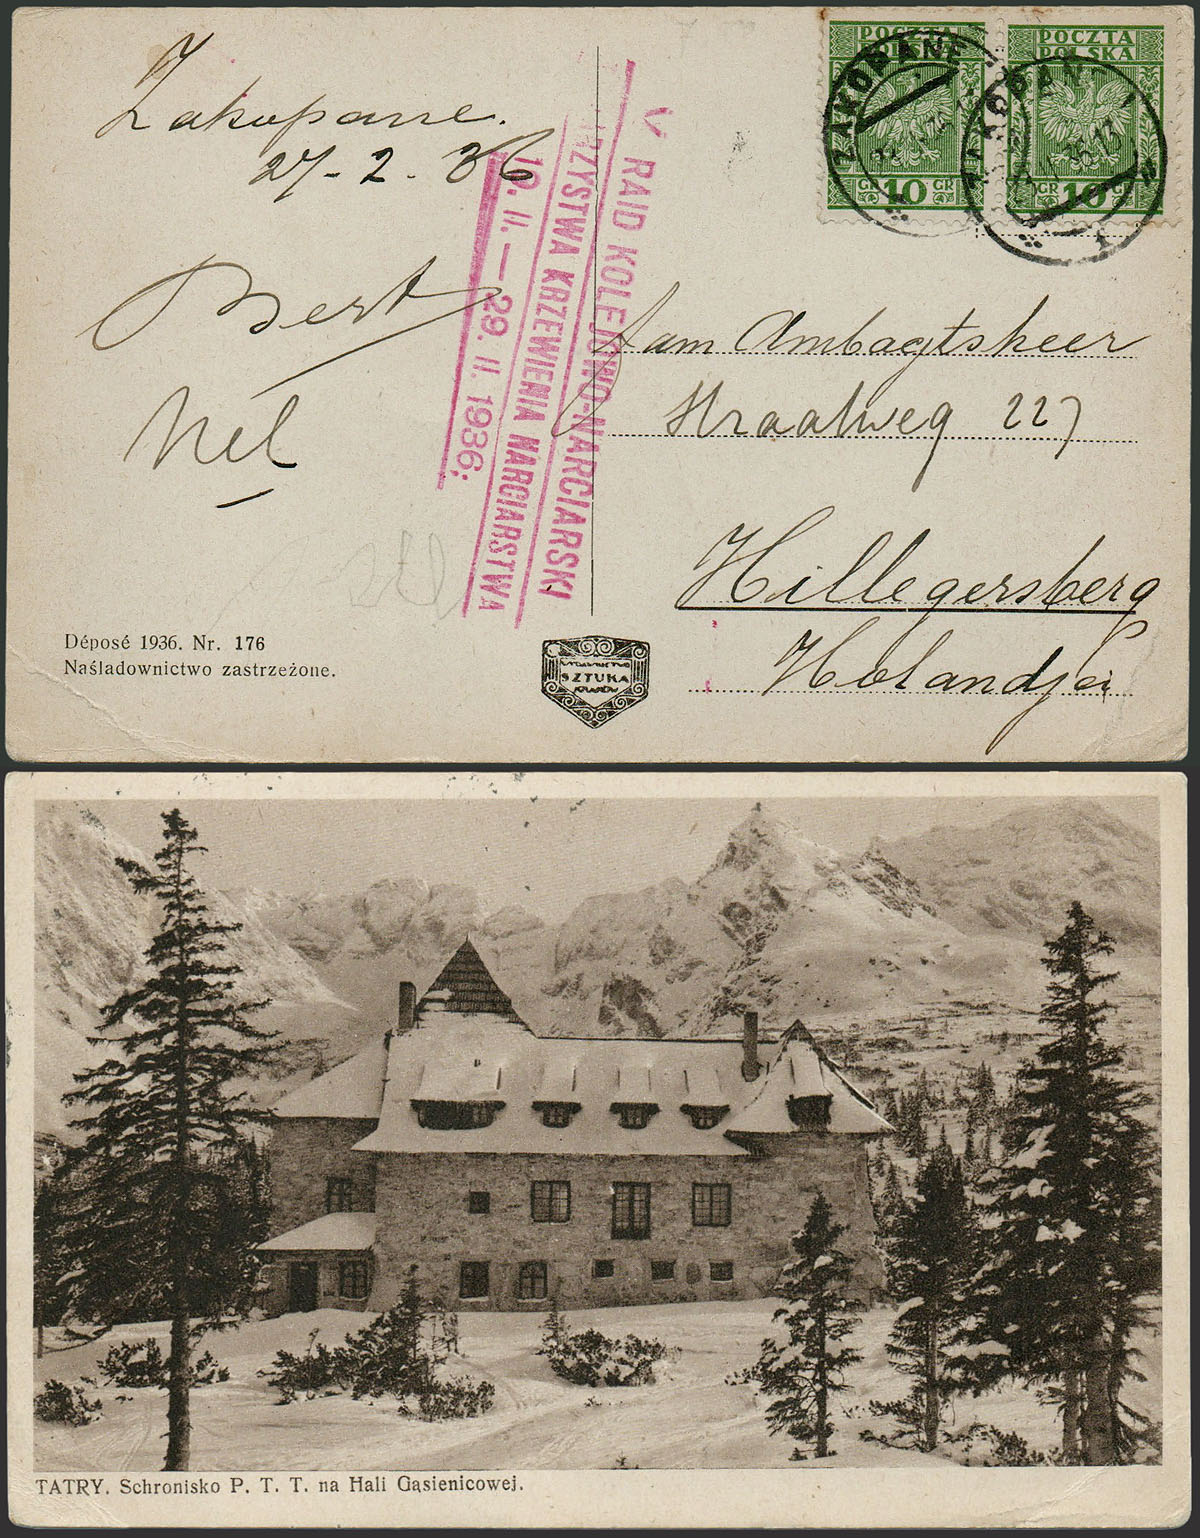 Zakopane.
27-2.36
Bert
Nel
V RAID KOLEJOWO-NARCIARSKI
KRZEWIENIA NARCIARSTWA
10. II.—29. II. 1936.
POCZTA
POLSKA
10 GR
POCZTA
POLSKA
GR 10 GR
ZAKOPANE
Aan Ambagtsheer
Straatweg 227
Hillegersberg
Holandja
Déposé 1936. Nr. 176
Naśladownictwo zastrzeżone.
WYDAWNICTWO
SZTUKA
KRAKÓW
TATRY. Schronisko P. T. T. na Hali Gąsienicowej.